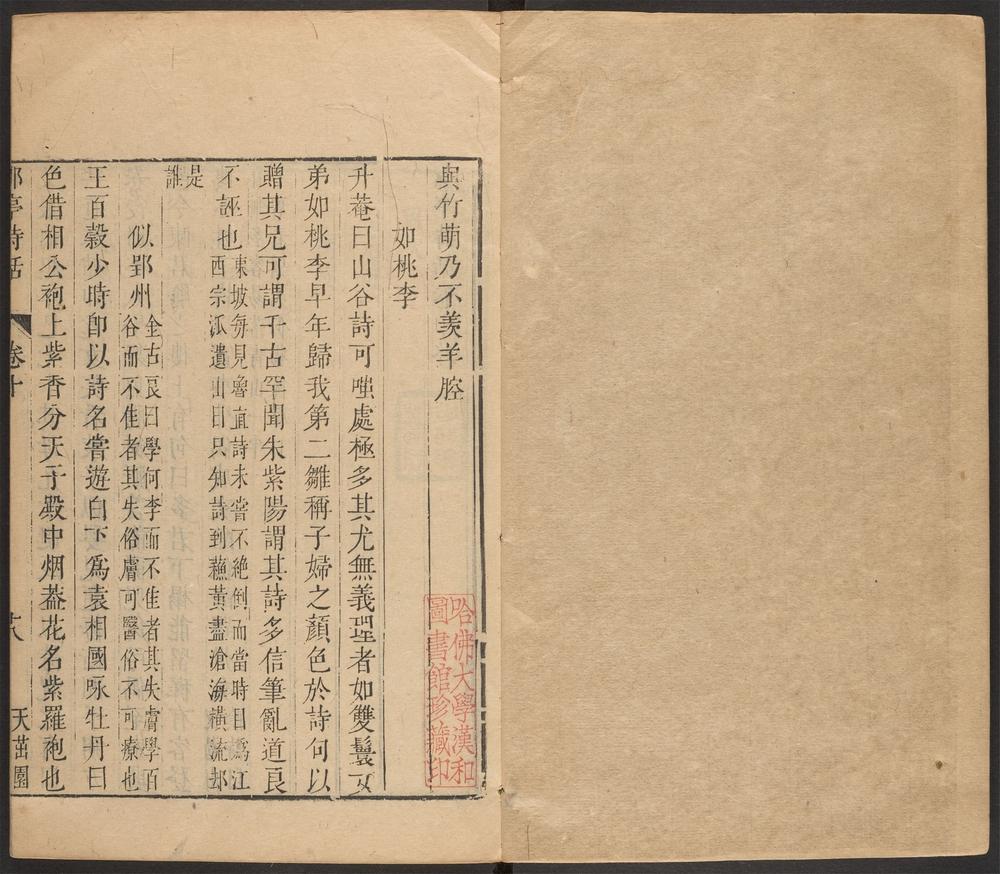 與竹萌乃不羨羊腔
如桃李
升菴曰山谷詩可嗤處極多其尤無義理者如雙鬟女
弟如桃李早年歸我第二雛稱子婦之顏色於詩句以
贈其兄可謂千古罕聞朱紫陽謂其詩多信筆亂道良
不誣也東坡每見魯直詩未嘗不絕倒而當時目為江
西宗派遺山曰只知詩到蘇黃盡滄海橫流却
是
誰
似郢州金古良曰學何李而不佳者其失膚學百
谷而不佳者其失俗膚可醫俗不可療也
王百穀少時卽以詩名嘗遊白下爲袁相國咏牡丹曰
色借相公袍上紫香分天子殿中烟葢花名紫羅袍也
亭詩話 卷十 十八 天茁園
哈佛大學漢和
圖書館珍藏印